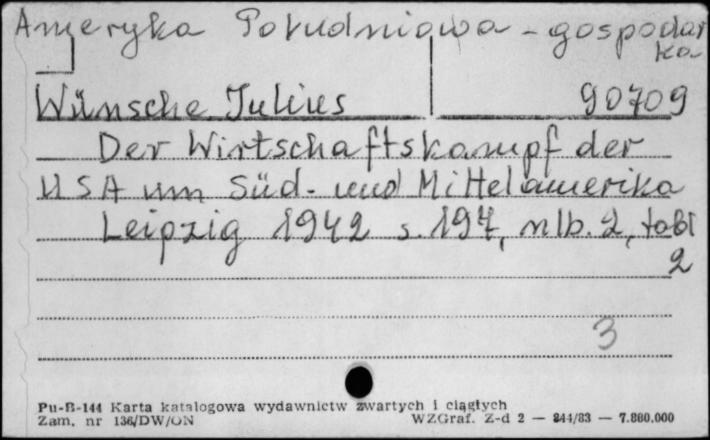 Ameryka Południowa - gospodar
ka
Wünsche Julius 90709
Der Wirtschaftskampf der
USA um Süd- und Mittelamerika
Leipzig 1942 s. 197, nlb. 2, tabl
2
3
Pu-B-144 Karta katalogowa wydawnictw zwartych i ciągłych
Zam. nr 136/DW/ON WZGraf. Z-d 2 — 244/83 — 7.880.000